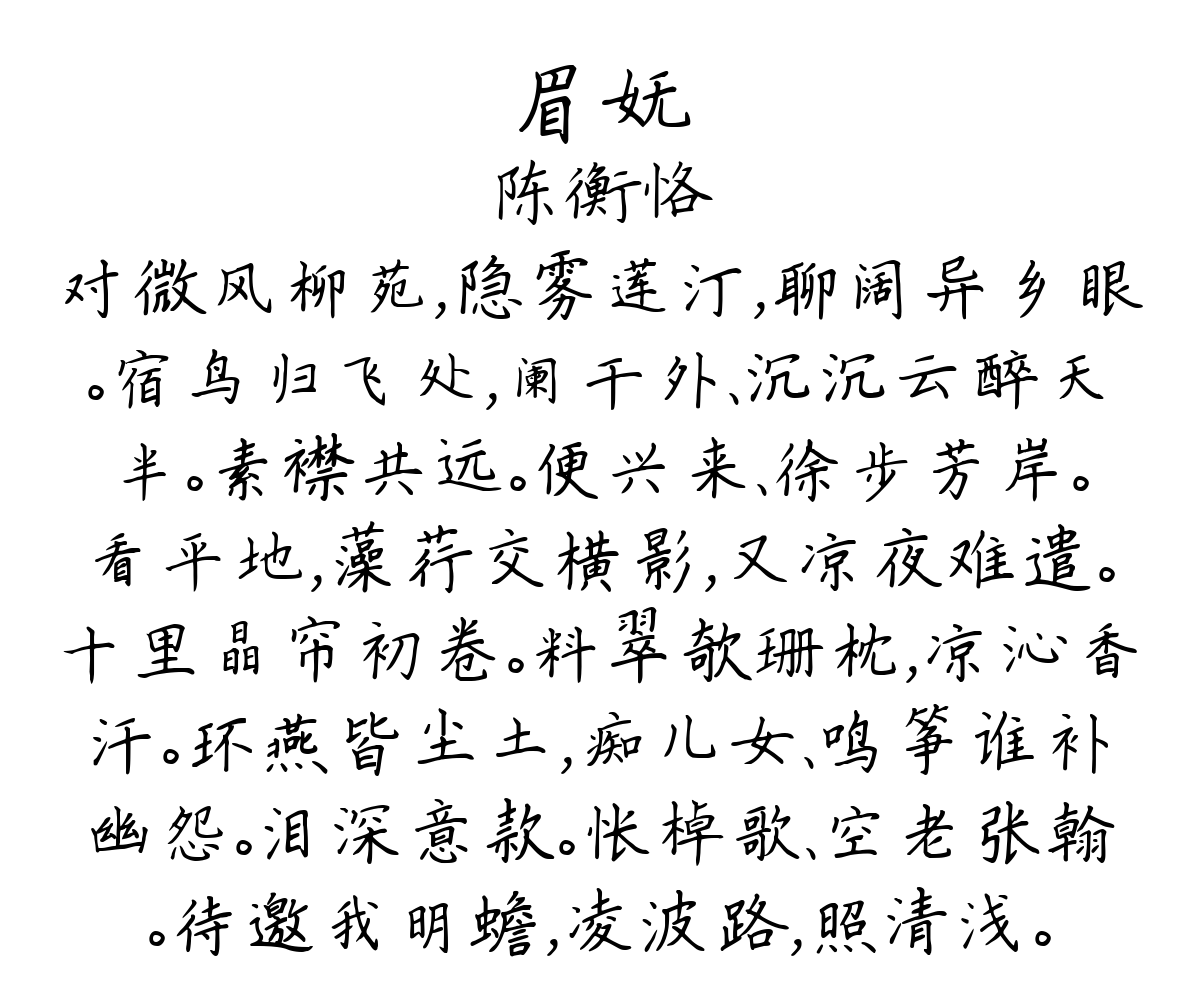 眉妩
陈衡恪
对微风柳苑,隐雾莲汀,聊阔异乡眼
。宿鸟归飞处,阑干外、沉沉云醉天
半。素襟共远。便兴来、徐步芳岸。
看平地,藻荇交横影,又凉夜难遣。
十里晶帘初卷。料翠欹珊枕,凉沁香
汗。环燕皆尘土,痴儿女、鸣筝谁补
幽怨。泪深意款。怅棹歌、空老张翰
。待邀我明蟾,凌波路,照清浅。